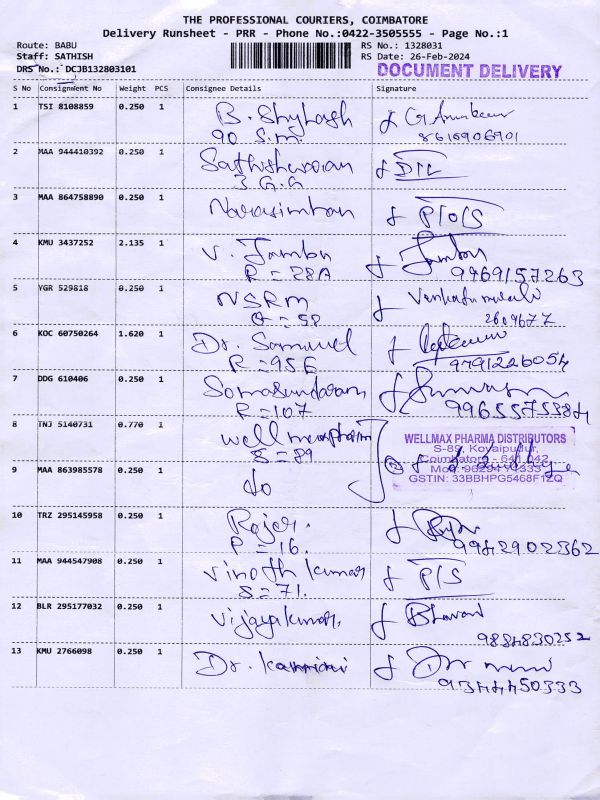 THE PROFESSIONAL COURIERS, COIMBATORE
Delivery Runsheet - PRR - Phone No.:0422-3505555 - Page No.:1
Route: BABU
Staff: SATHISH
DRS No.: DCJB132803101
RS No.: 1328031
RS Date: 26-Feb-2024
DOCUMENT DELIVERY
S No Consignment No Weight PCS Consignee Details Signature
1 TSI 8108859 0.250 1
90 S.m.
2 MAA 944410392 0.250 1
3 MAA 864758890 0.250 1 Narasimhan
4 KMU 3437252 2.135 1 V. Jambu
R = 28A 9969157263
5 YGR 529818 0.250 1 NSRM
2609677
6 KOC 60750264 1.620 1 Dr. Samuel
R = 95E 9791226054
7 DDG 610406 0.250 1 Somasundaram
R = 107 9965575384
8 TNJ 5140731 0.770 1
S = 89
WELLMAX PHARMA DISTRIBUTORS
S-89, Kovaipudur,
Coimbatore - 641 042
GSTIN: 33BBHPG5468F1ZQ
9 MAA 863985578 0.250 1 do
10 TRZ 295145958 0.250 1
P = 16. 9942902362
11 MAA 944547908 0.250 1 Vinoth kumar P/S
S = 71.
12 BLR 295177032 0.250 1 Vijayakumar.
9884830252
13 KMU 2766098 0.250 1 Dr.
9344450333